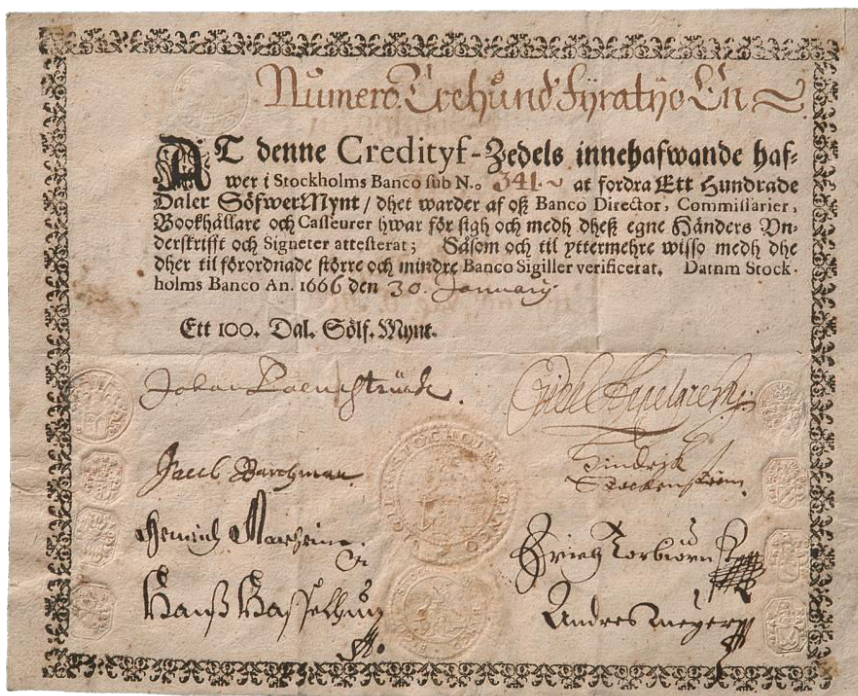 Numero Trehund Fyratijo En
AT denne Credityf-Zedels innehafwande haf-
wer i Stockholms Banco sub N.o 341. at fordra Ett Hundrade
Daler SöfwerMynt / dhet warder af oß Banco Director, Commissarier,
Bookhållare och Casseurer hwar för sigh och medh dheß egne Händers Vn-
derskrifft och Signeter attesterat; Såsom och til yttermehre wisso medh dhe
dher til förordnade större och mindre Banco Sigiller verificerat. Datum Stock-
holms Banco An. 1666 den 30. January.
Ett 100. Dal. Sölf. Mynt.
Johan
Jacob Barchman
Hindrich
Henrich
Torbiörn
Hanß
Andres Meyer
STOCHOLMS BANCO